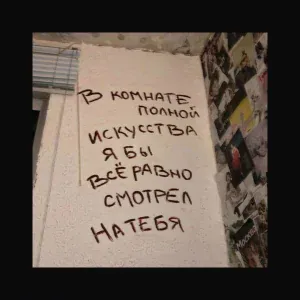 В КОМНАТЕ
ПОЛНОЙ
ИСКУССТВА
Я БЫ
ВСЁ РАВНО
СМОТРЕЛ
НА ТЕБЯ